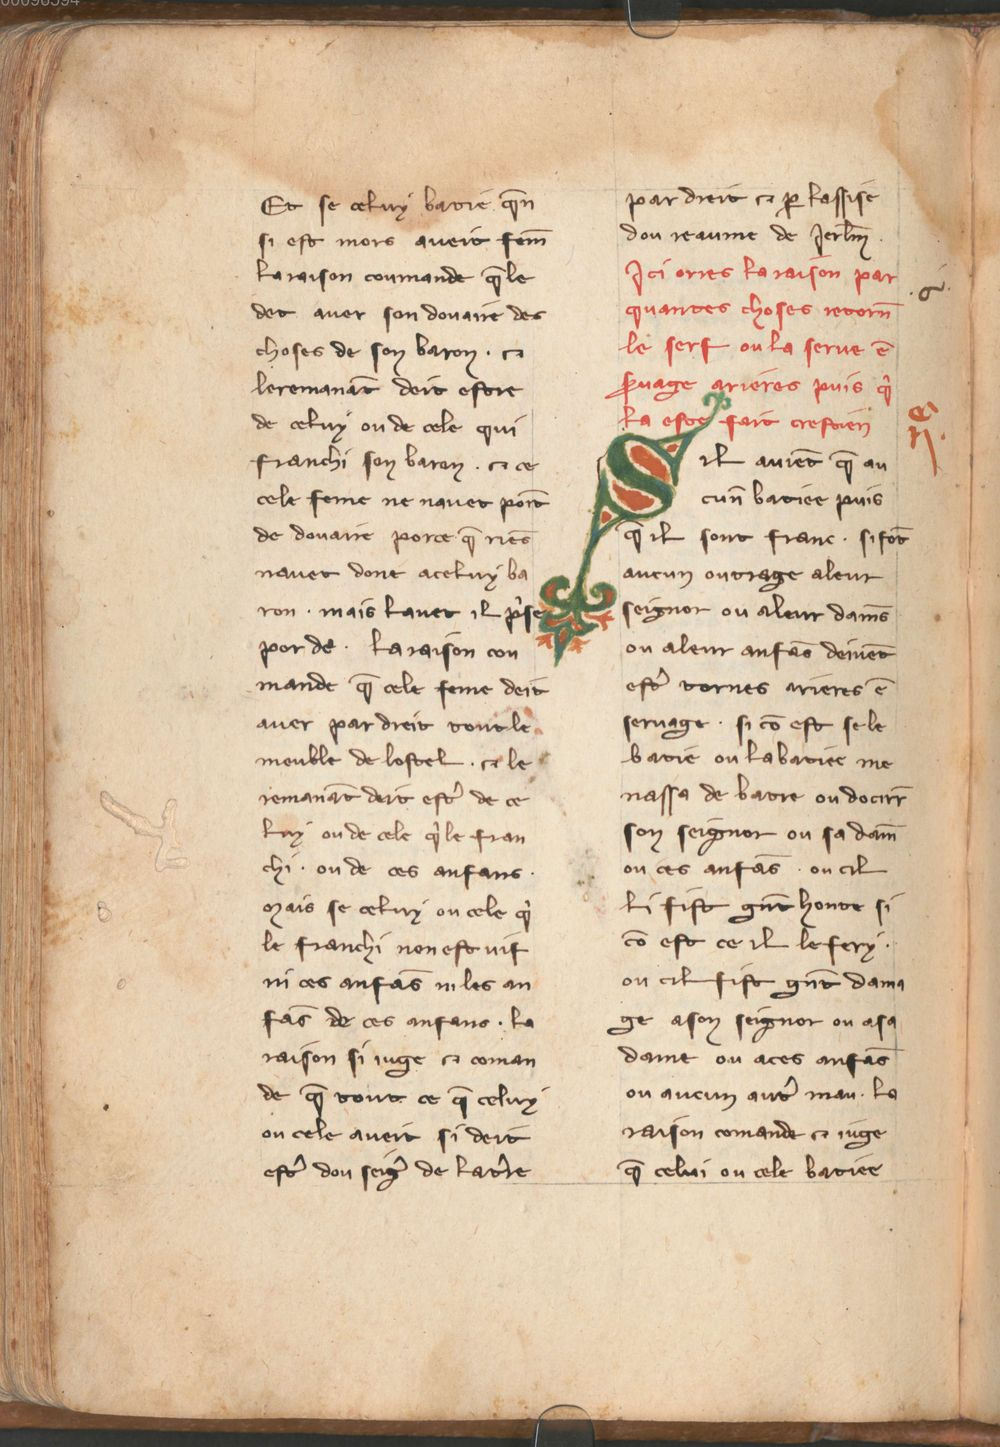 Et se celuy batie q̄n
si est mors aueit fem̄
la raison coumande q̄ le
det auer son douaire des
choses de son baron · ⁊
le remanāt deit estre
de celuy ou de cele qui
franchi son baron · ⁊ ce
cele feme ne nauet poīt
de douaire porce q̄ riēs
nauet done a celuy ba
ron · mais lauet il p̓se
por de · la raison cou
mande q̄ cele feme deit
auer par dreit tout le
meuble de lostel · ⁊ le
remanāt deit est̓ de ce
luy ou de cele q̓ le fran
chi · ou de ces anfans ·
Mais se celuy ou cele q̓
le franchi non est uif
ni ces anfās ni les an
fās de ces anfans · la
raison si iuge ⁊ coman
de q̄ tout ce q̄ celuy
ou cele aueit si deit
est̓ dou seig̓ de la t̓re
par dreit ⁊ ꝑ lassise
dou reaume de Jerl̄m ·
Jci orres la raison par
quantes choses retorn̄
le serf ou la serue ē
s̓uage arieres puis q̓
la este fait crestien
Sil auiēt q̄ au
cun̄ batiee puis
q̄ il sont franc · si fōt
aucun outrage a leur
seignor ou a leur dam̄s
ou a leur anfās deiuēt
est̓ tornes arieres ē
seruage · si cō est se le
batie ou la batiee me
nassa de batre ou docirr̄
son seignor ou sa dam̄
ou ces anfās · ou cil
li fist gñt honte si
cō est ce il le fery ·
ou cil fist gñt dama
ge a son seignor ou a sa
dame ou a ces anfās
ou aucun aut̓ mau · la
raison comande ⁊ iuge
q̄ celui ou cele batiee